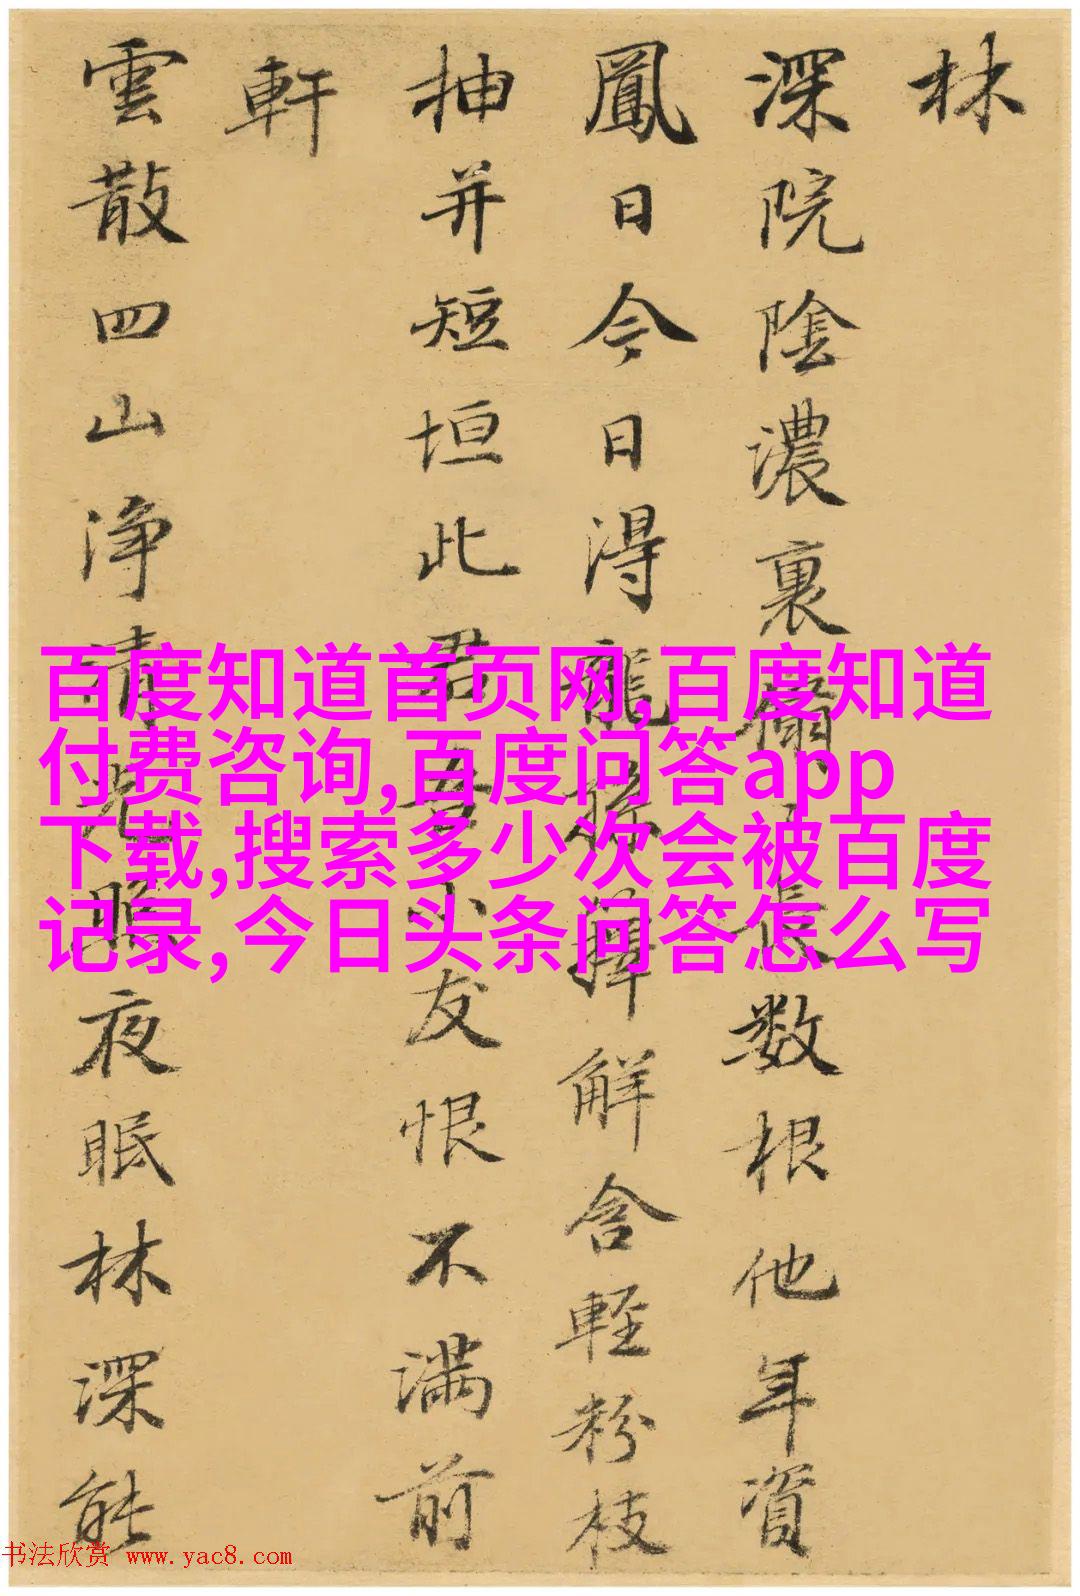 林
深院陰濃裏 長數根他年資
鳳日今日得龍孫籜解含輕粉枝
抽并短垣此君吾小友恨不滿前
軒
雲散四山淨清光照夜眠林深能
百度知道首页网,百度知道
付费咨询,百度问答app
下载,搜索多少次会被百度
记录,今日头条问答怎么写
书法欣赏 www.yac8.com